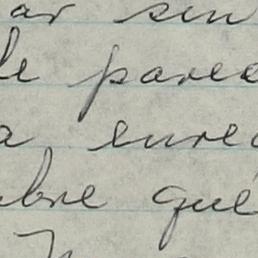 ar sin
le parec
a enred
bre que